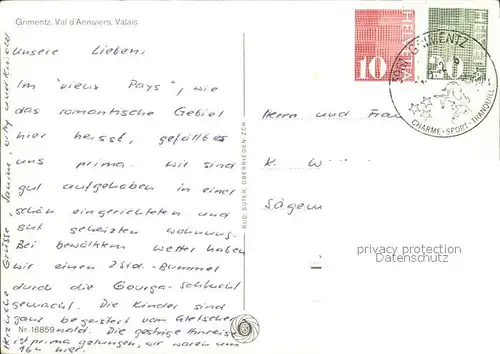 Grimentz. Val d'Anniviers, Valais
Unsere Lieben,
Im "vieux Pays", wie
das romantische Gebiet
hier heisst, gefällt es
uns prima. Wir sind
gut aufgehoben in einer
schön eingerichteten und
gut geheizten Wohnung.
Bei bewölktem Wetter haben
wir einen 2 Std.-Bummel
durch die Gouga-Schlucht
gemacht. Die Kinder sind
ganz begeistert vom Gletscher
wald. Die gestrige Hinreise
ist prima gelungen, wir waren um
16h hier.
Herzliche Grüsse,
und Kinder
Nr. 16859
RUD. SUTER, OBERRIEDEN-ZCH.
HELVETIA
10
HELVETIA
20
GRIMENTZ
CHARME-SPORT-TRANQUILL
Herrn und Frau
K. W
Sägem
passion protection
Datenschutz